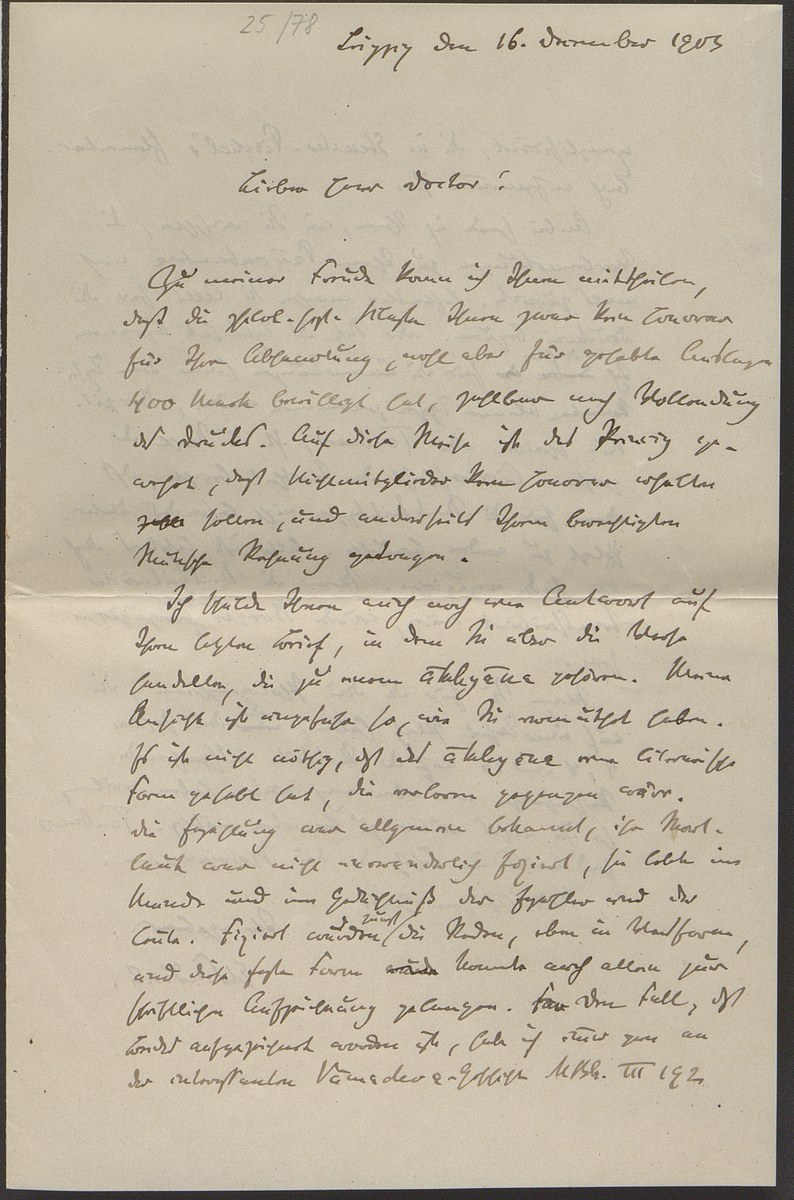 25/78
Leipzig den 16. December 1903
Lieber Herr Doctor!
Zu meiner Freude kann ich Ihnen mittheilen,
daß die philol.-hist. Klasse Ihnen zwar kein Honorar
für Ihre Abhandlung, wohl aber für gehabte Auslagen
400 Mark bewilligt hat, zahlbar nach Vollendung
des Druckes. Auf diese Weise ist das Princip ge-
wahrt, daß Nichtmitglieder kein Honorar erhalten
sollen, und anderseits Ihrem berechtigten
Wunsche Rechnung getragen.
Ich schulde Ihnen auch noch eine Antwort auf
Ihren letzten Brief, in dem Sie über die Verse
handelten, die zu einem ākhyāna gehören. Meine
Ansicht ist ungefähr so, wie Sie vermuthet haben.
Es ist nicht nöthig, daß das ākhyāna eine literarische
Form gehabt hat, die verloren gegangen wäre.
Die Erzählung war allgemein bekannt, ihr Wort-
laut war nicht unveränderlich fixirt, sie lebte im
Munde und im Gedächtniß der Erzähler und der
Leute. Fixirt wurden zunächst die Reden, eben in Versform,
und diese feste Form konnte auch allein zur
schriftlichen Aufzeichnung gelangen. Für den Fall, daß
beides aufgezeichnet worden ist, habe ich immer gern an
der interessanten Vāmadeva-Geschichte MBh. III 192